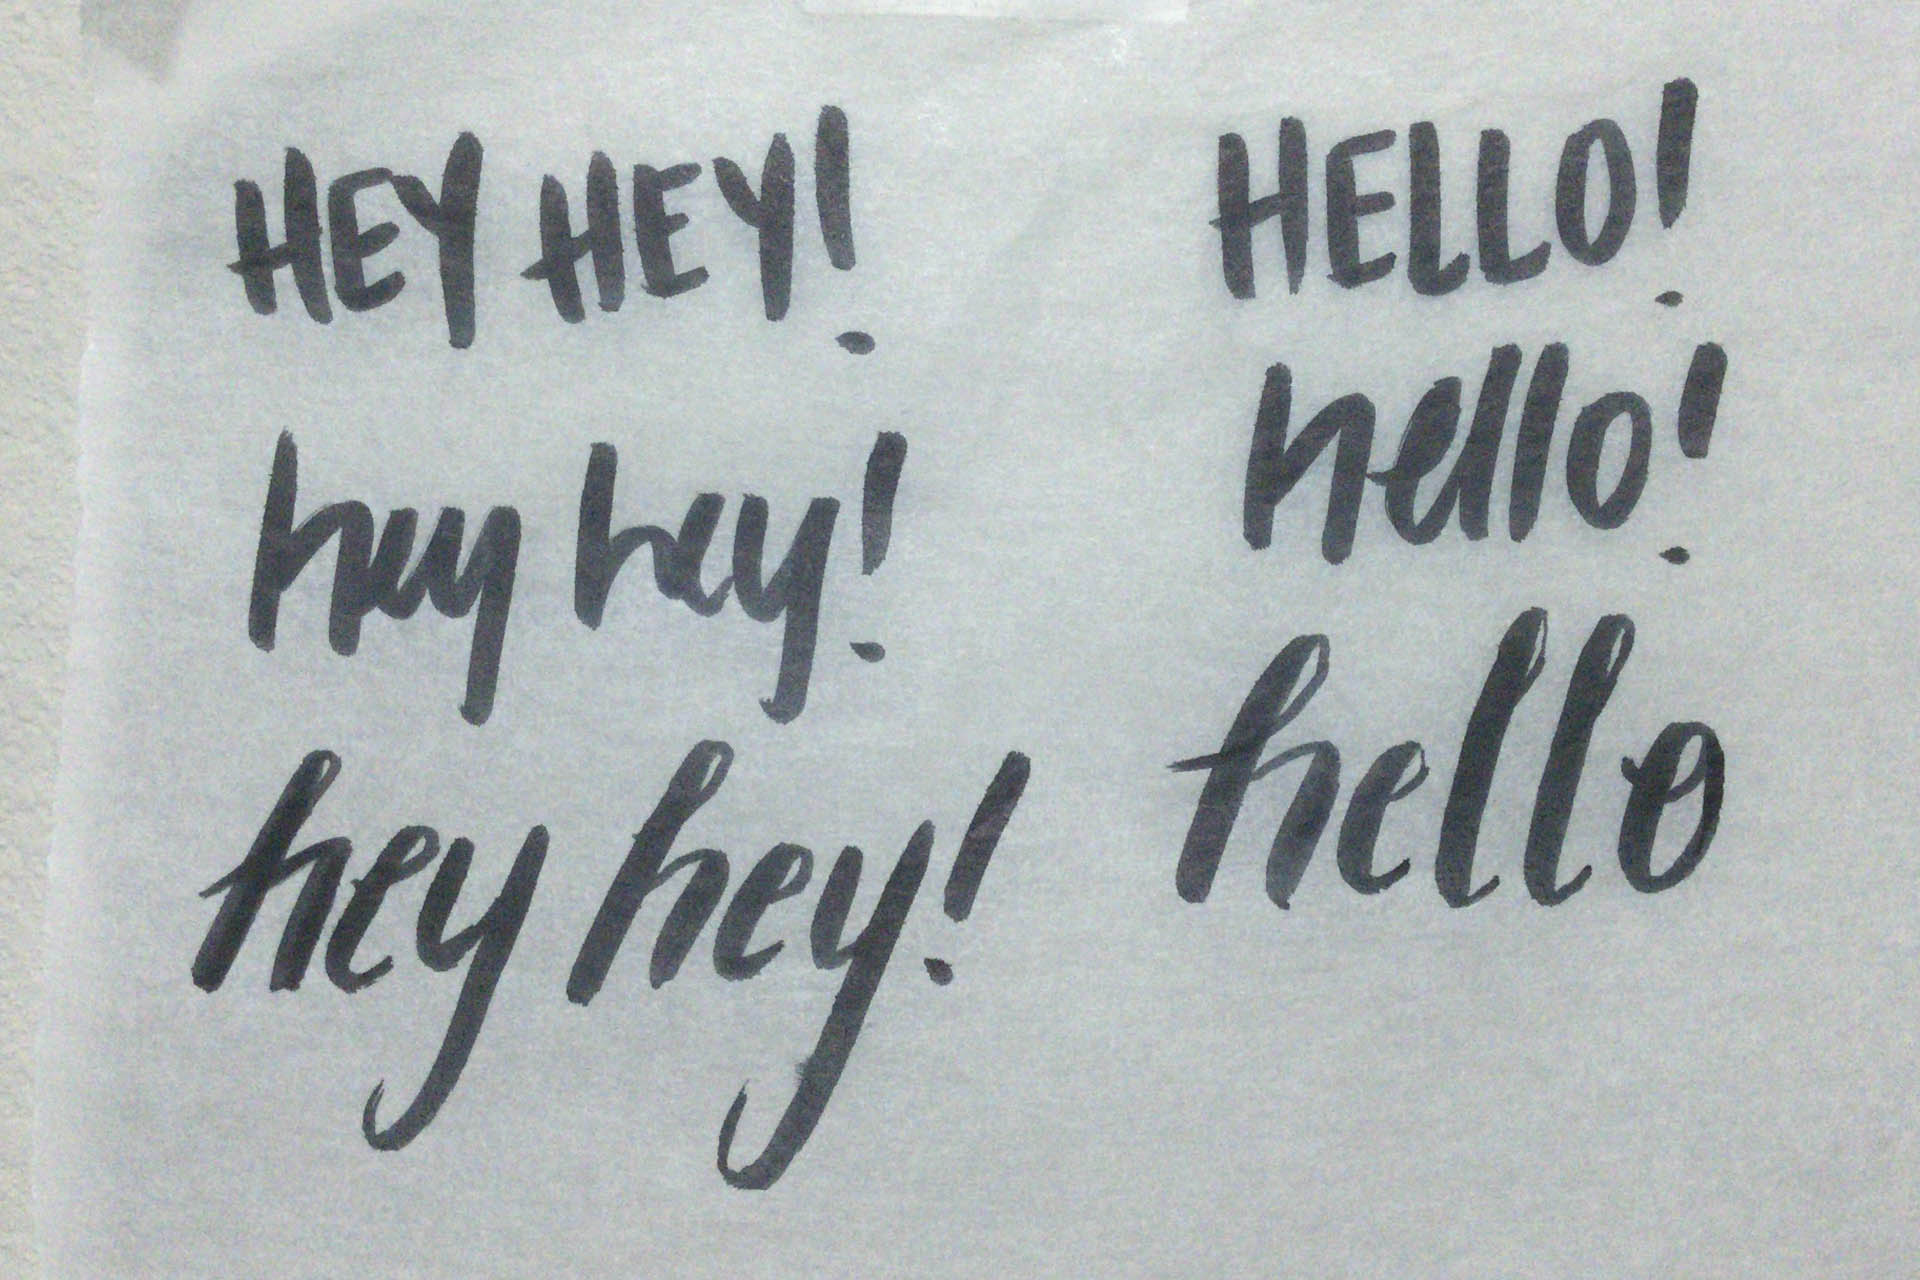 HEY HEY!
hey hey!
hey hey!
HELLO!
hello!
hello